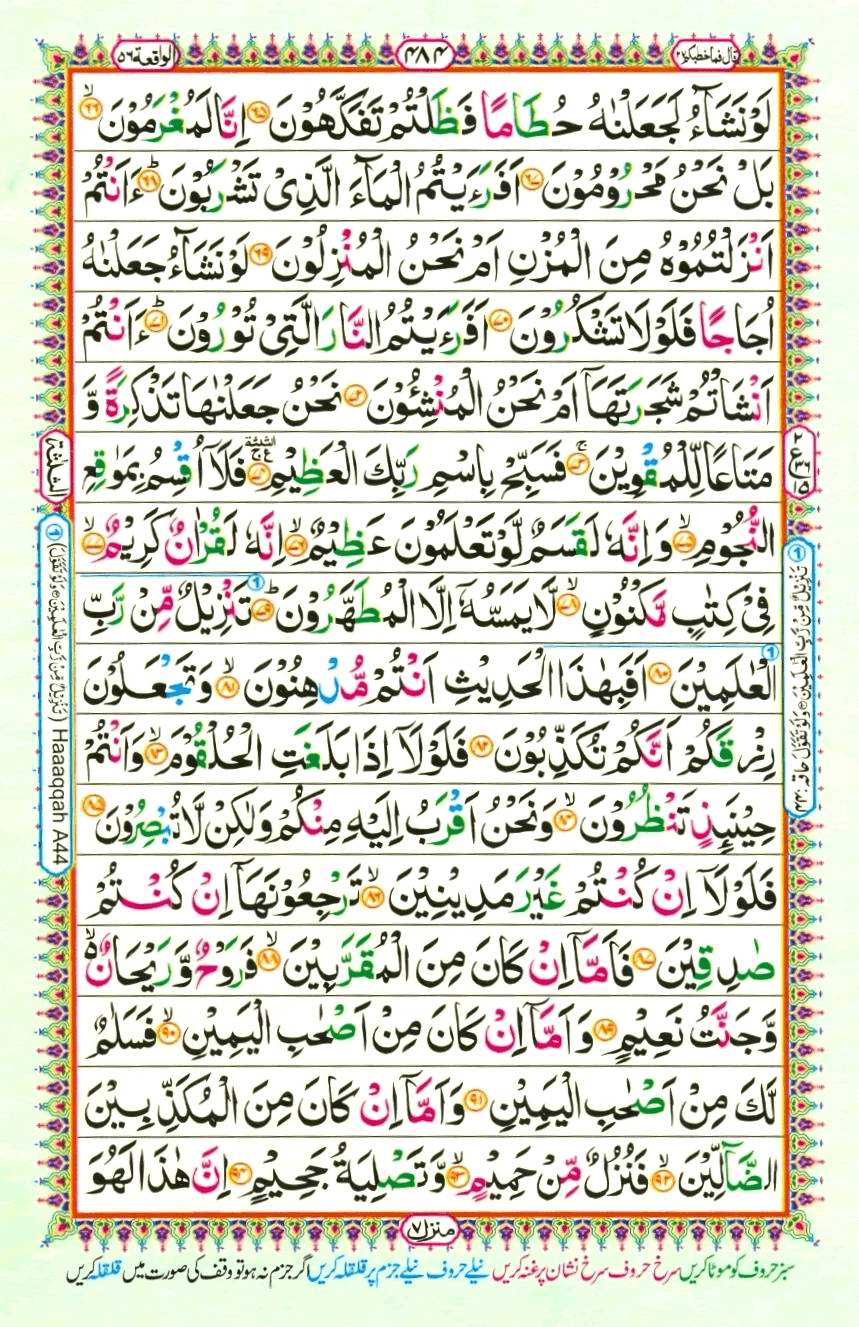 قال فما خطبكم ٢٧
٤٨٤
الواقعة ٥٦
لَوْ نَشَآءُ لَجَعَلْنٰهُ حُطَامًا فَظَلْتُمْ تَفَكَّهُوْنَ ﴿٦٥﴾ اِنَّا لَمُغْرَمُوْنَ ﴿٦٦﴾
بَلْ نَحْنُ مَحْرُوْمُوْنَ ﴿٦٧﴾ اَفَرَءَيْتُمُ الْمَآءَ الَّذِىْ تَشْرَبُوْنَ ﴿٦٨﴾ ءَاَنْتُمْ
اَنْزَلْتُمُوْهُ مِنَ الْمُزْنِ اَمْ نَحْنُ الْمُنْزِلُوْنَ ﴿٦٩﴾ لَوْ نَشَآءُ جَعَلْنٰهُ
اُجَاجًا فَلَوْلَا تَشْكُرُوْنَ ﴿٧٠﴾ اَفَرَءَيْتُمُ النَّارَ الَّتِىْ تُوْرُوْنَ ﴿٧١﴾ ءَاَنْتُمْ
اَنْشَاْتُمْ شَجَرَتَهَآ اَمْ نَحْنُ الْمُنْشِئُوْنَ ﴿٧٢﴾ نَحْنُ جَعَلْنٰهَا تَذْكِرَةً وَّ
مَتَاعًا لِّلْمُقْوِيْنَ ﴿٧٣﴾ فَسَبِّحْ بِاسْمِ رَبِّكَ الْعَظِيْمِ ﴿٧٤﴾ فَلَآ اُقْسِمُ بِمَوٰقِعِ
النُّجُوْمِ ﴿٧٥﴾ وَاِنَّهٗ لَقَسَمٌ لَّوْ تَعْلَمُوْنَ عَظِيْمٌ ﴿٧٦﴾ اِنَّهٗ لَقُرْاٰنٌ كَرِيْمٌ ﴿٧٧﴾
فِىْ كِتٰبٍ مَّكْنُوْنٍ ﴿٧٨﴾ لَّا يَمَسُّهٗٓ اِلَّا الْمُطَهَّرُوْنَ ﴿٧٩﴾ تَنْزِيْلٌ مِّنْ رَّبِّ
الْعٰلَمِيْنَ ﴿٨٠﴾ اَفَبِهٰذَا الْحَدِيْثِ اَنْتُمْ مُّدْهِنُوْنَ ﴿٨١﴾ وَتَجْعَلُوْنَ
رِزْقَكُمْ اَنَّكُمْ تُكَذِّبُوْنَ ﴿٨٢﴾ فَلَوْلَآ اِذَا بَلَغَتِ الْحُلْقُوْمَ ﴿٨٣﴾ وَاَنْتُمْ
حِيْنَئِذٍ تَنْظُرُوْنَ ﴿٨٤﴾ وَنَحْنُ اَقْرَبُ اِلَيْهِ مِنْكُمْ وَلٰكِنْ لَّا تُبْصِرُوْنَ ﴿٨٥﴾
فَلَوْلَآ اِنْ كُنْتُمْ غَيْرَ مَدِيْنِيْنَ ﴿٨٦﴾ تَرْجِعُوْنَهَآ اِنْ كُنْتُمْ
صٰدِقِيْنَ ﴿٨٧﴾ فَاَمَّآ اِنْ كَانَ مِنَ الْمُقَرَّبِيْنَ ﴿٨٨﴾ فَرَوْحٌ وَّرَيْحَانٌ
وَّجَنَّتُ نَعِيْمٍ ﴿٨٩﴾ وَاَمَّآ اِنْ كَانَ مِنْ اَصْحٰبِ الْيَمِيْنِ ﴿٩٠﴾ فَسَلٰمٌ
لَّكَ مِنْ اَصْحٰبِ الْيَمِيْنِ ﴿٩١﴾ وَاَمَّآ اِنْ كَانَ مِنَ الْمُكَذِّبِيْنَ
الضَّآلِّيْنَ ﴿٩٢﴾ فَنُزُلٌ مِّنْ حَمِيْمٍ ﴿٩٣﴾ وَّتَصْلِيَةُ جَحِيْمٍ ﴿٩٤﴾ اِنَّ هٰذَا لَهُوَ
الثلثة
Haaaqqah A44
منزل ٧
سبز حروف کو موٹا کریں سرخ حروف سرخ نشان پر غنہ کریں نیلے حروف نیلے جزم پر قلقلہ کریں اگر جزم نہ ہو تو وقف کی صورت میں قلقلہ کریں